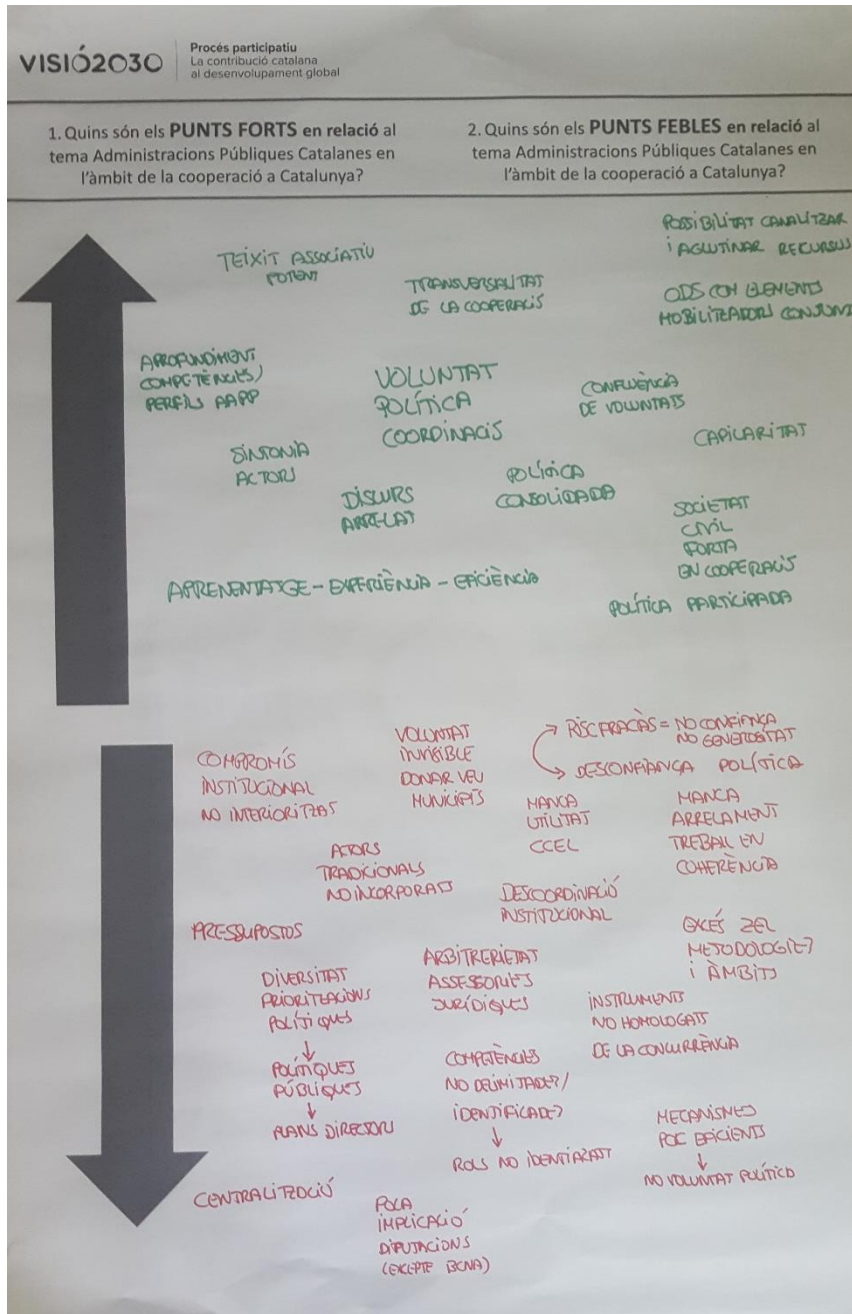 VISIÓ2030
Procés participatiu
La contribució catalana
al desenvolupament global
1. Quins són els PUNTS FORTS en relació al
tema Administracions Públiques Catalanes en
l'àmbit de la cooperació a Catalunya?
2. Quins són els PUNTS FEBLES en relació al
tema Administracions Públiques Catalanes en
l'àmbit de la cooperació a Catalunya?
POSSIBILITAT CANALITZAR
I AGLUTINAR RECURSOS
TEIXIT ASSOCIATIU
POTENT
TRANSVERSALITAT
DE LA COOPERACIÓ
ODS COM ELEMENTS
MOBILITZADORS CONJUNT
APROFUNDIMENT
COMPETÈNCIES/
PERFILS AAPP
VOLUNTAT
POLÍTICA
COORDINACIÓ
CONFLUÈNCIA
DE VOLUNTATS
CAPILARITAT
SINTONIA
ACTORS
DISCURS
ARRELAT
POLÍTICA
CONSOLIDADA
SOCIETAT
CIVIL
FORTA
EN COOPERACIÓ
APRENENTATGE - EXPERIÈNCIA - EFICIÈNCIA
POLÍTICA PARTICIPADA
COMPROMÍS
INSTITUCIONAL
NO INTERIORITZAT
VOLUNTAT
INVISIBLE
DONAR VEU
MUNICIPIS
→ RISC FRACÀS = NO CONFIANÇA
NO GENEROSITAT
→ DESCONFIANÇA POLÍTICA
MANCA
UTILITAT
CCEL
MANCA
ARRELAMENT
TREBALL EN
COHERÈNCIA
ACTORS
TRADICIONALS
NO INCORPORATS
DESCOORDINACIÓ
INSTITUCIONAL
PRESSUPOSTOS
EXCÉS ZEL
METODOLOGIES
I ÀMBITS
DIVERSITAT
PRIORITZACIONS
POLÍTIQUES
↓
POLÍTIQUES
PÚBLIQUES
↓
PLANS DIRECTORS
ARBITRERIETAT
ASSESSORIES
JURÍDIQUES
INSTRUMENTS
NO HOMOLOGATS
DE LA CONCURRÈNCIA
COMPETÈNCIES
NO DELIMITADES/
IDENTIFICADES
↓
ROLS NO IDENTIFICATS
MECANISMES
POC EFICIENTS
↓
NO VOLUNTAT POLÍTICA
CENTRALITZACIÓ
POCA
IMPLICACIÓ
DIPUTACIONS
(EXCEPTE BCNA)